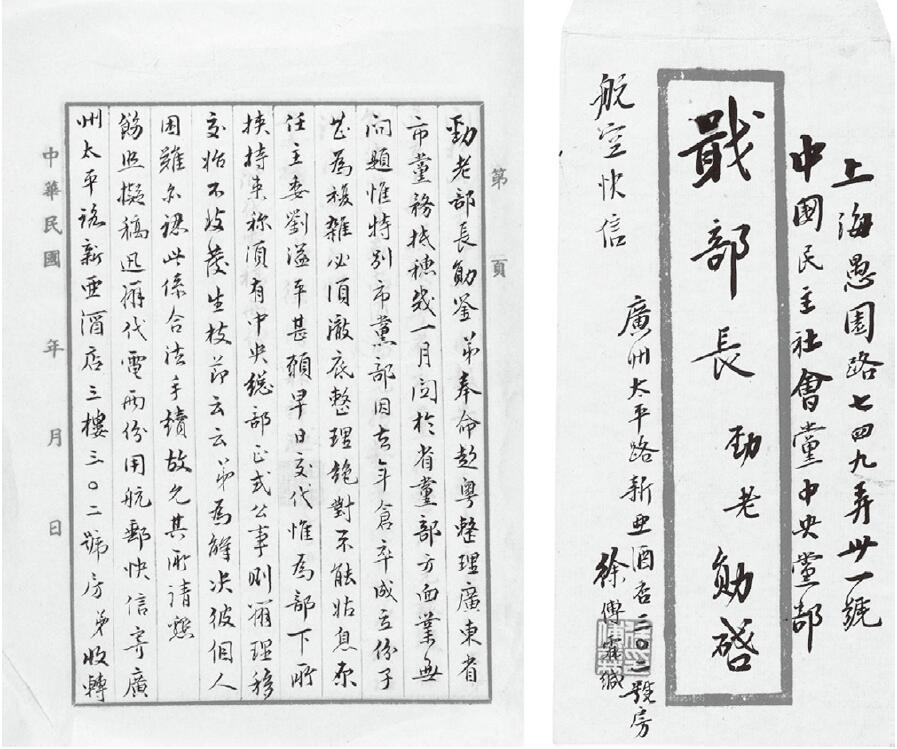 上海愚園路七四九弄卅一號
中國民主社會黨中央黨部
戢部長 勁老勛啓
航空快信
廣州太平路新亞酒店三〇二號房
徐傅霖緘
第 頁
勁老部長勛鑒弟奉命赴粵整理廣東省
市黨務抵穗幾一月關於省黨部方面業無
問題惟特別市黨部因去年倉卒成立份子
甚為複雜必須澈底整理絕對不能姑息原
任主委劉溢平甚願早日交代惟為部下所
挾持束称須有中央總部正式公事則辦理移
交始不致發生枝節云云弟為解決彼個人
困難亦認此係合法手續故允其所請
飭照擬稿迅辦代電兩份用航郵快信寄廣
州太平路新亞酒店三樓三〇二號房弟收轉
中華民國 年 月 日